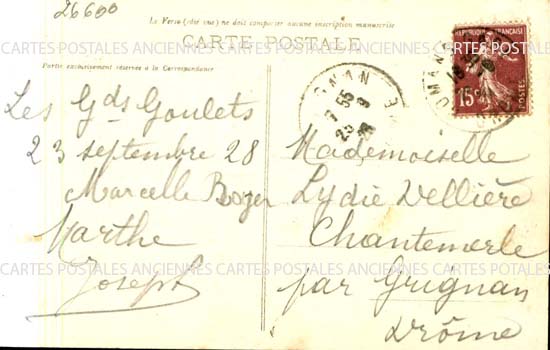 26600
Le Verso (côté vue) ne doit comporter aucune inscription manuscrite
CARTE POSTALE
Partie exclusivement réservée à la Correspondance
REPUBLIQUE FRANÇAISE
15c
POSTES
Les Gds Goulets
23 septembre 28
Marcelle Boyer
Marthe
Joseph
Mademoiselle
Lydie Vellière
Chantemerle
par Grignan
Drôme
CARTES POSTALES ANCIENNES CARTES POSTALES ANCIENNES CARTES POSTALES
CARTES POSTALES ANCIENNES CARTES POSTALES ANCIENNES CARTES POSTALES